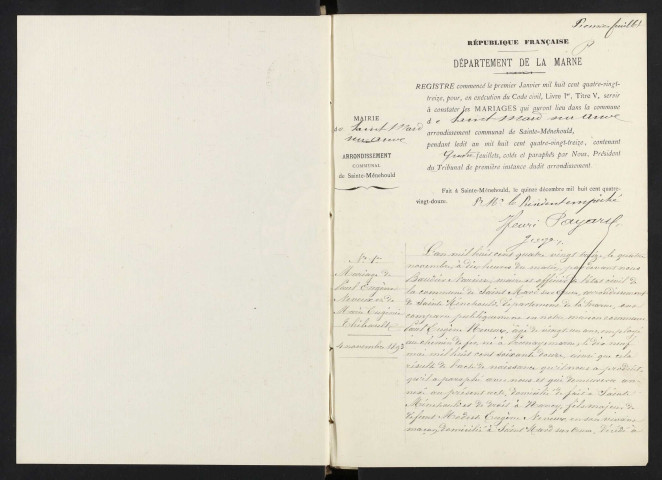 Premier feuillet
RÉPUBLIQUE FRANÇAISE
DÉPARTEMENT DE LA MARNE
REGISTRE commencé le premier Janvier mil huit cent quatre-vingt-
treize, pour, en exécution du Code civil, Livre Ier, Titre V, servir
à constater les MARIAGES qui auront lieu dans la commune
de Saint Mard sur auve
arrondissement communal de Sainte-Ménehould,
pendant ledit an mil huit cent quatre-vingt-treize, contenant
Quatre feuillets, cotés et paraphés par Nous, Président
du Tribunal de première instance dudit arrondissement.
Fait à Sainte-Ménehould, le quinze décembre mil huit cent quatre-
vingt-douze.
Pr Mr le Président empêché
Henri Payart
Juge
MAIRIE
de Saint Mard
sur auve
ARRONDISSEMENT
COMMUNAL
de Sainte-Ménehould
No 1er
Mariage de
Paul Eugène
et de
Marie Eugénie
Thibault
4 novembre 1893
L'an mil huit cent quatre vingt treize, le quatre
novembre, à dix heures du matin, par devant nous
maire et officier de l'état civil de
la commune de Saint Mard sur auve, arrondissement
de Sainte Ménehould, département de la Marne, ont
comparu publiquement en notre maison commune
Paul Eugène, âgé de vingt un ans, employé
au chemin de fer, né à le dix neuf
mai mil huit cent soixante douze, ainsi que cela
résulte de l'acte de naissance qu'il nous a produit,
qu'il a paraphé avec nous et qui demeurera
au présent acte, domicilié de fait à Sainte
Ménehould et de droit à, fils majeur de
défunt Modeste Eugène, en son vivant
domicilié à Saint Mard sur auve, décédé à